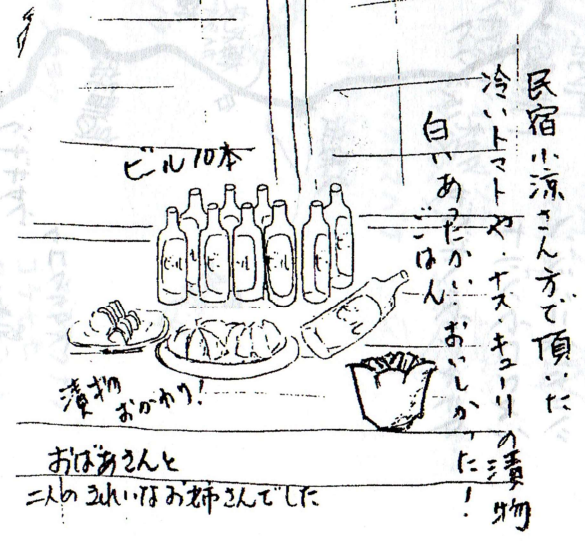 民宿小涼さん方で頂いた
冷いトマトや、ナス・キューリの漬物
白いあったかいごはん
おいしかった！
ビル10本
ビール
ビール
ビール
ビール
漬物
おかわり！
おばあさんと
二人のきれいなお姉さんでした